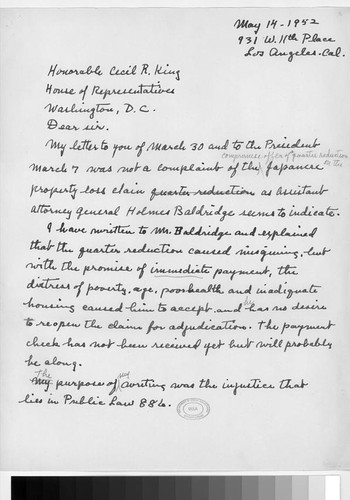 May 14 - 1952
931 W. 11th Place
Los Angeles. Cal.
Honorable Cecil R. King
House of Representatives
Washington, D. C.
Dear sir.
My letter to you of March 30 and to the President
compromise offer of quarter reduction
on the
March 7 was not a complaint of the Japanese
property loss claim quarter reduction as assistant
attorney general Holmes Baldridge seems to indicate.
I have written to Mr. Baldridge and explained
that the quarter reduction caused misgiving, but
with the promise of immediate payment, the
distress of poverty, age, poor health and inadiquate
housing caused him to accept and he has no desire
to reopen the claims for adjudication. The payment
check has not been received yet but will probably
be along.
The my
My purpose of writing was the injustice that
lies in Public Law 886.